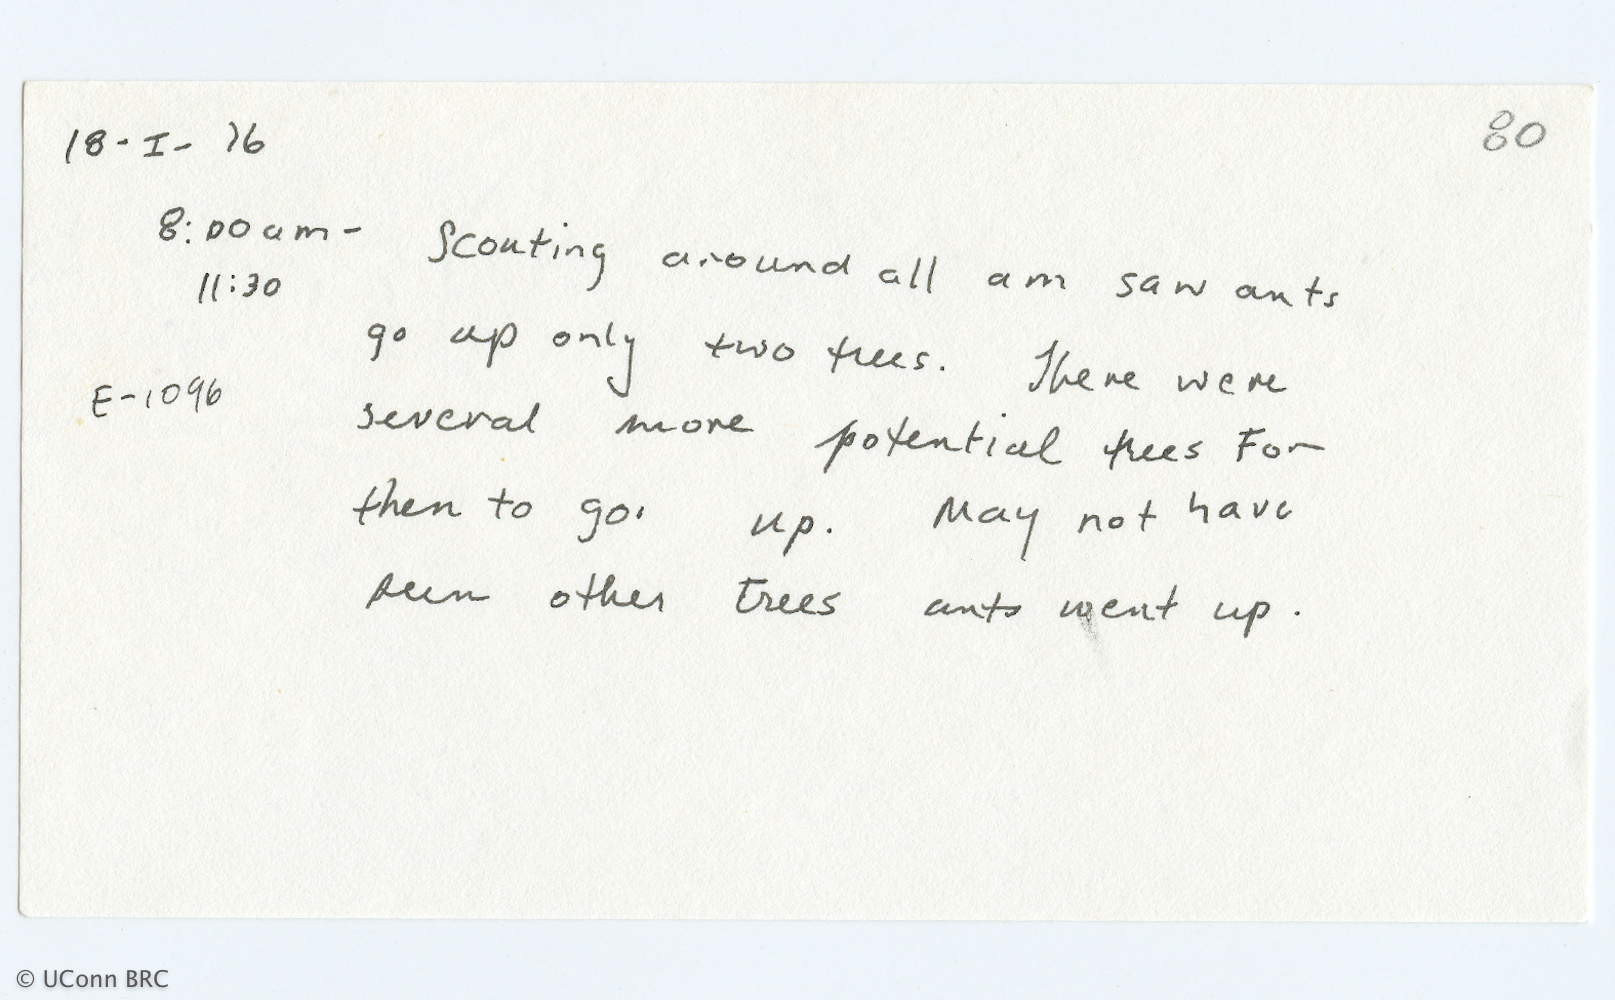 18-I-76
80
8:00am-
11:30
Scouting around all am saw ants
go up only two trees. There were
E-1096
several more potential trees For
then to go up. May not have
seen other trees ants went up.
© UConn BRC